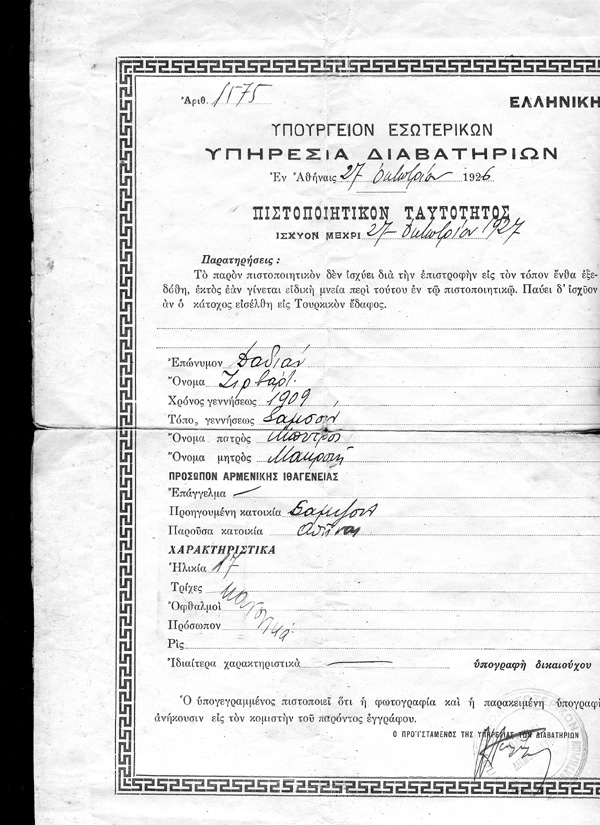 Ἀριθ. 1575
ΕΛΛΗΝΙΚΗ
ΥΠΟΥΡΓΕΙΟΝ ΕΣΩΤΕΡΙΚΩΝ
ΥΠΗΡΕΣΙΑ ΔΙΑΒΑΤΗΡΙΩΝ
Ἐν Ἀθήναις 27 Ὀκτωβρίου 1926
ΠΙΣΤΟΠΟΙΗΤΙΚΟΝ ΤΑΥΤΟΤΗΤΟΣ
ΙΣΧΥΟΝ ΜΕΧΡΙ 27 Ὀκτωβρίου 1927
Παρατηρήσεις :
Τὸ παρὸν πιστοποιητικὸν δὲν ἰσχύει διὰ τὴν ἐπιστροφὴν εἰς τὸν τόπον ἔνθα ἐξε-
δόθη, ἐκτὸς ἐὰν γίνεται εἰδικὴ μνεία περὶ τούτου ἐν τῷ πιστοποιητικῷ. Παύει δ' ἰσχῦον
ἂν ὁ κάτοχος εἰσέλθη εἰς Τουρκικὸν ἔδαφος.
Ἐπώνυμον Δαδιάν
Ὄνομα Ζιρβάρτ
Χρόνος γεννήσεως 1909
Τόπο, γεννήσεως Σαμσοῦν
Ὄνομα πατρὸς
Ὄνομα μητρὸς
ΠΡΟΣΩΠΟΝ ΑΡΜΕΝΙΚΗΣ ΙΘΑΓΕΝΕΙΑΣ
Ἐπάγγελμα —
Προηγουμένη κατοικία Σαμψοῦντ
Παροῦσα κατοικία Ἀθῆναι
ΧΑΡΑΚΤΗΡΙΣΤΙΚΑ
Ἡλικία 17
Τρίχες
Ὀφθαλμοὶ
Πρόσωπον
Ρὶς
κανονικά
Ἰδιαίτερα χαρακτηριστικὰ —
ὑπογραφὴ δικαιούχου
Ὁ ὑπογεγραμμένος πιστοποιεῖ ὅτι ἡ φωτογραφία καὶ ἡ παρακειμένη ὑπογραφὴ
ἀνήκουσιν εἰς τὸν κομιστὴν τοῦ παρόντος ἐγγράφου.
Ο ΠΡΟΪΣΤΑΜΕΝΟΣ ΤΗΣ ΥΠΗΡΕΣΙΑΣ ΤΩΝ ΔΙΑΒΑΤΗΡΙΩΝ